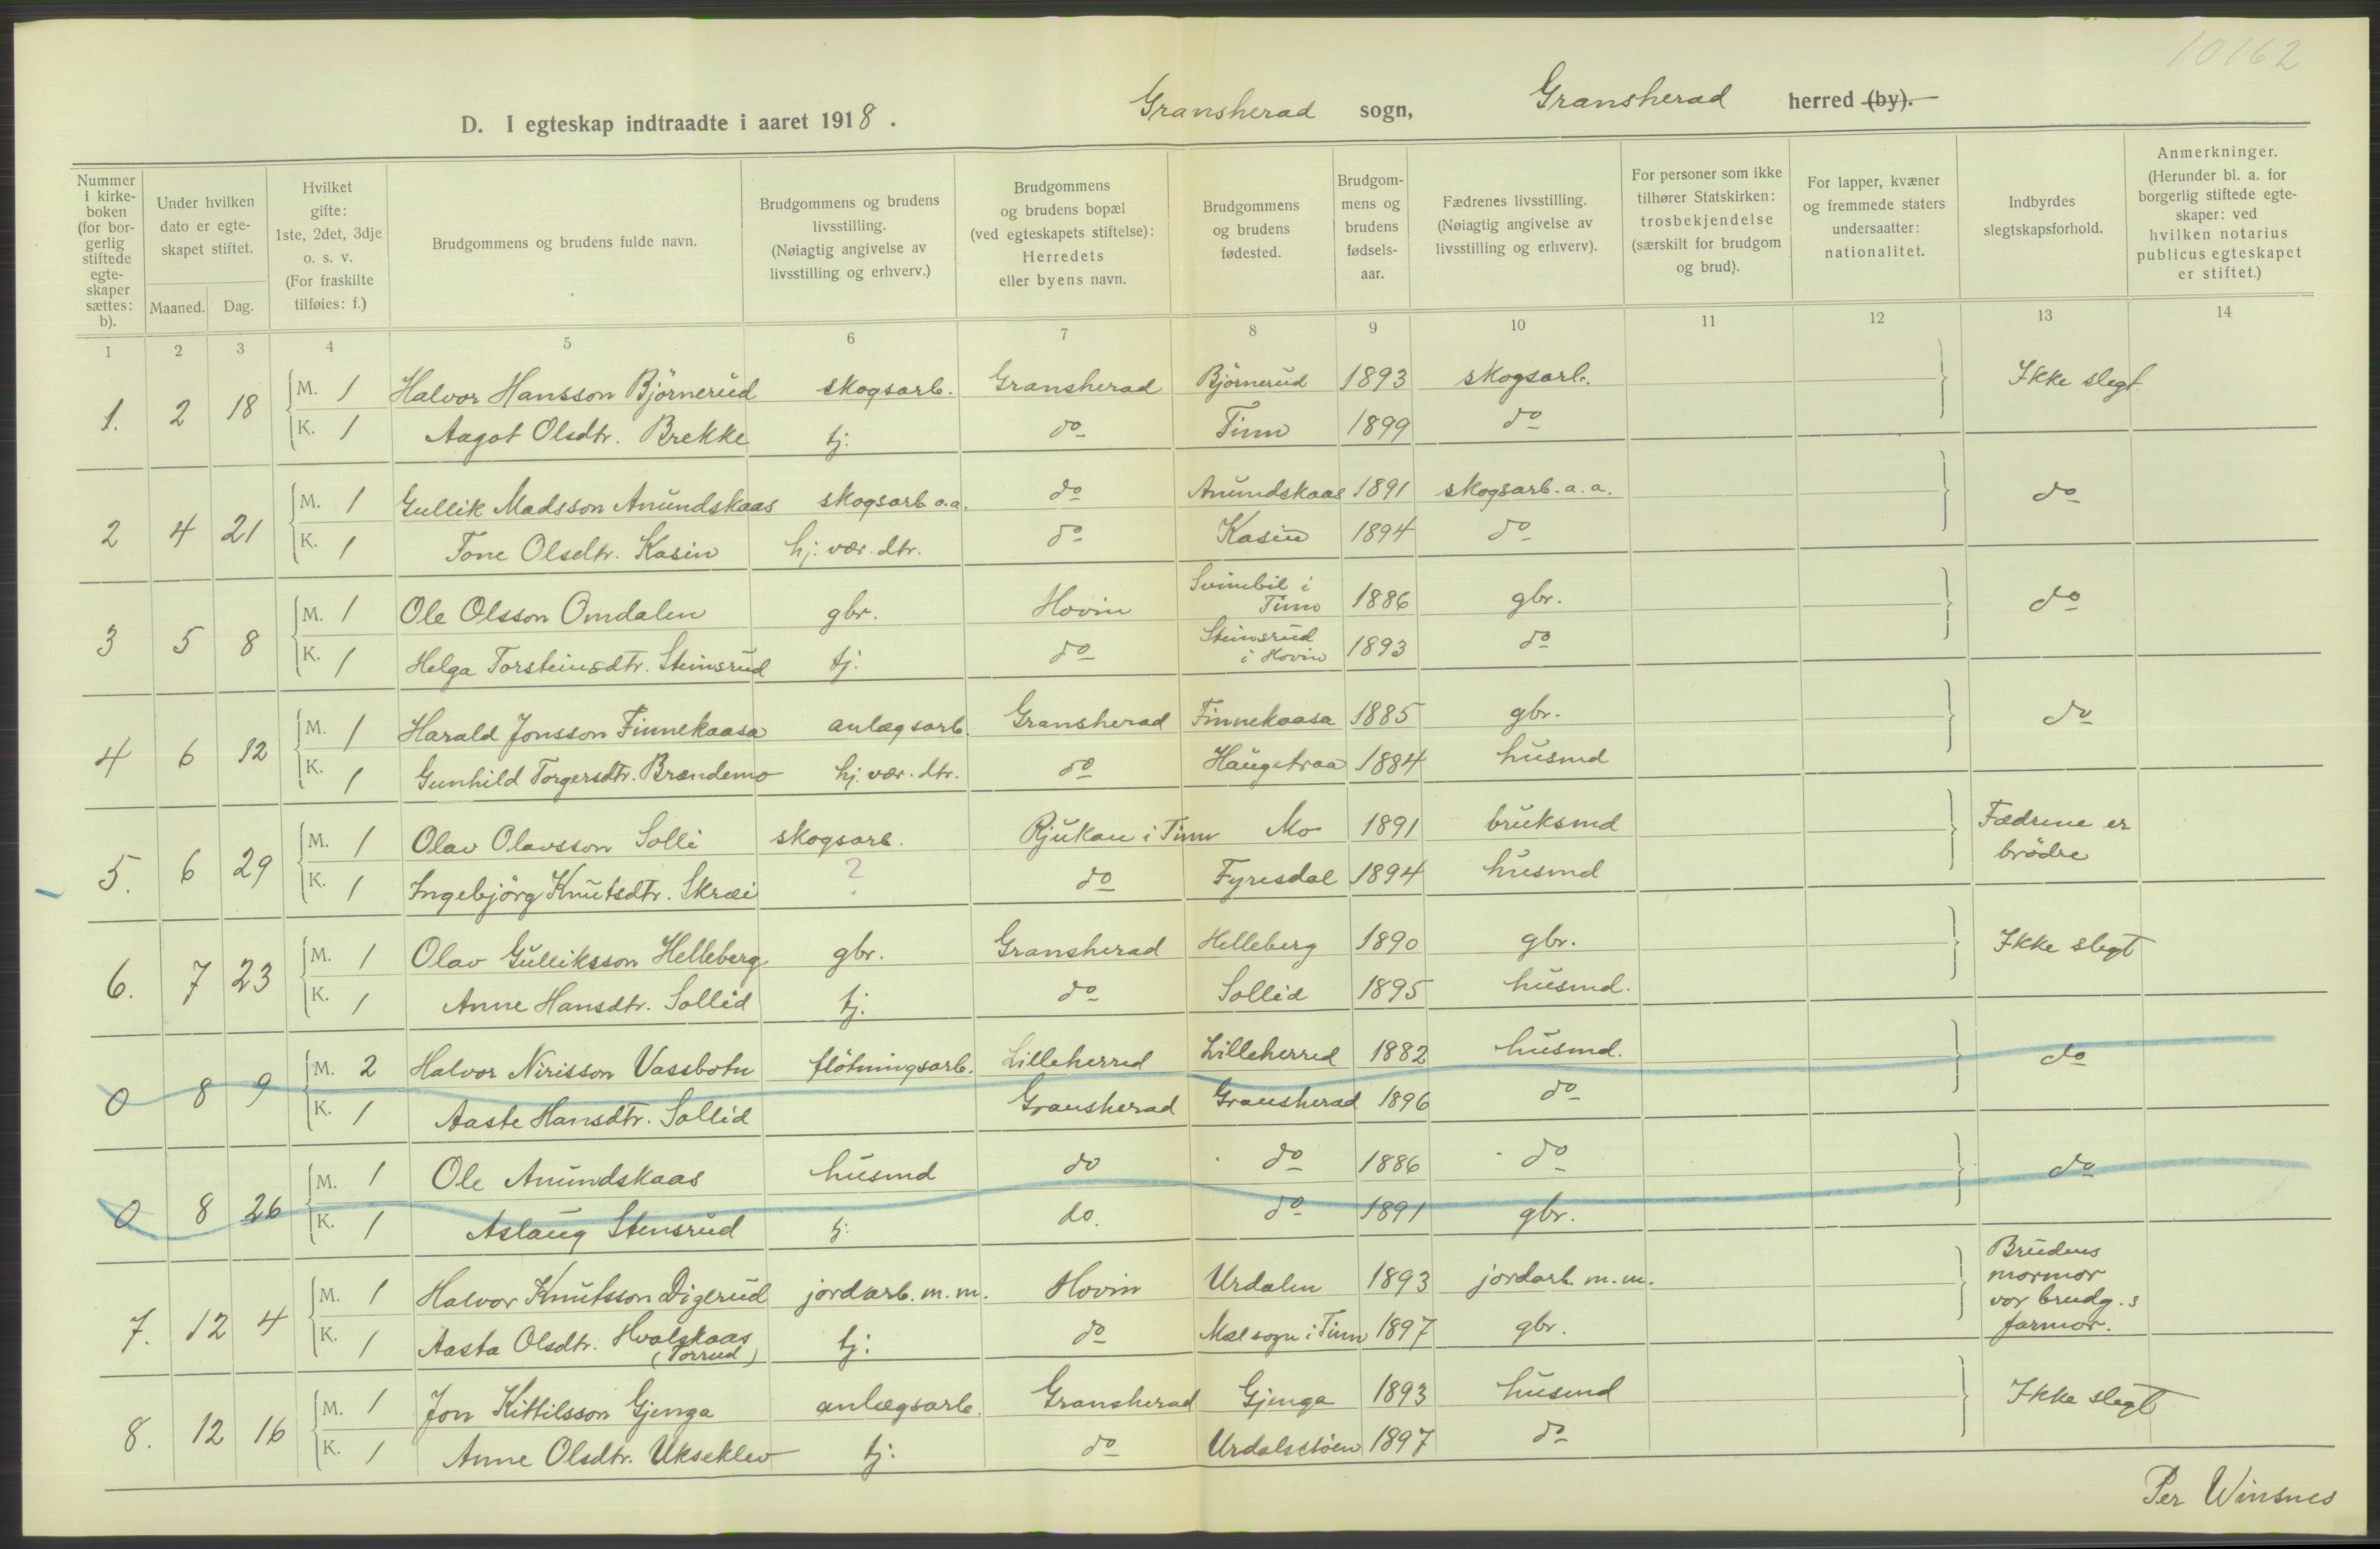 10162
D. I egteskap indtraadte i aaret 1918. Gransherad sogn, Gransherad herred (by).
Nummer i kirkeboken (for borgerlig stiftede egteskaper sættes: b).
Under hvilken dato er egteskapet stiftet. Maaned. Dag.
Hvilket gifte: 1ste, 2det, 3dje o. s. v. (For fraskilte tilføies: f.)
Brudgommens og brudens fulde navn.
Brudgommens og brudens livsstilling. (Nøiagtig angivelse av livsstilling og erhverv.)
Brudgommens og brudens bopæl (ved egteskapets stiftelse): Herredets eller byens navn.
Brudgommens og brudens fødested.
Brudgommens og brudens fødselsaar.
Fædrenes livsstilling. (Nøiagtig angivelse av livsstilling og erhverv).
For personer som ikke tilhører Statskirken: trosbekjendelse (særskilt for brudgom og brud).
For lapper, kvæner og fremmede staters undersaatter: nationalitet.
Indbyrdes slegtskapsforhold.
Anmerkninger. (Herunder bl. a. for borgerlig stiftede egteskaper: ved hvilken notarius publicus egteskapet er stiftet.)
1 2 3 4 5 6 7 8 9 10 11 12 13 14
1. 2 18 M. 1 Halvor Hansson Björnerud skogsarb. Gransherad Björnerud 1893 skogsarb. Ikke slegt
K. 1 Aagot Olsdtr. Brekke tj. do Tinn 1899 do
2 4 21 M. 1 Gullik Madsson Anundskaas skogsarb o.a. do Anundskaas 1891 skogsarb. a. a. do
K. 1 Tone Olsdtr. Kasin hj. vær. dtr. do Kasin 1894 do
3 5 8 M. 1 Ole Olsson Omdalen gbr. Hovin Svinebil i Tinn 1886 gbr. do
K. 1 Helga Torsteinsdtr. Steinsrud tj. do Steinsrud i Hovin 1893 do
4 6 12 M. 1 Harald Jonsson Finnekaasa anlægsarb. Gransherad Finnekaasa 1885 gbr. do
K. 1 Gunhild Torgersdtr. Brændemo hj. vær. dtr. do Haugetraa 1884 husmd
5. 6 29 M. 1 Olav Olavsson Solli skogsarb. Rjukan i Tinn Mo 1891 bruksmd Fædrene er brödre
K. 1 Ingebjörg Knutsdtr. Skræi ? do Fyresdal 1894 husmd
6. 7 23 M. 1 Olav Gulliksson Helleberg gbr. Gransherad Helleberg 1890 gbr. Ikke slegt
K. 1 Anne Hansdtr. Sollid tj. do Sollid 1895 husmd.
0 8 9 M. 2 Halvor Nirisson Vassbotn flötningsarb. Lilleherred Lilleherred 1882 husmd. do
K. 1 Aaste Hansdtr. Sollid Gransherad Gransherad 1896 do
0 8 26 M. 1 Ole Anundskaas husmd do do 1886 do do
K. 1 Aslaug Stensrud tj. do. do 1891 gbr.
7. 12 4 M. 1 Halvor Knutsson Digerud jordarb. m. m. Hovin Urdalen 1893 jordarb. m. m. Brudens mormor var brudg.s farmor.
K. 1 Aasta Olsdtr. Hvalskaas (Torrud) tj: do Mæl sogn i Tinn 1897 gbr.
8. 12 16 M. 1 Jon Kittilsson Gjenga anlægsarb. Gransherad Gjenga 1893 husmd Ikke slegt
K. 1 Anne Olsdtr. Ukseklev tj: do Urdalstöen 1897 do
Per Winsnes